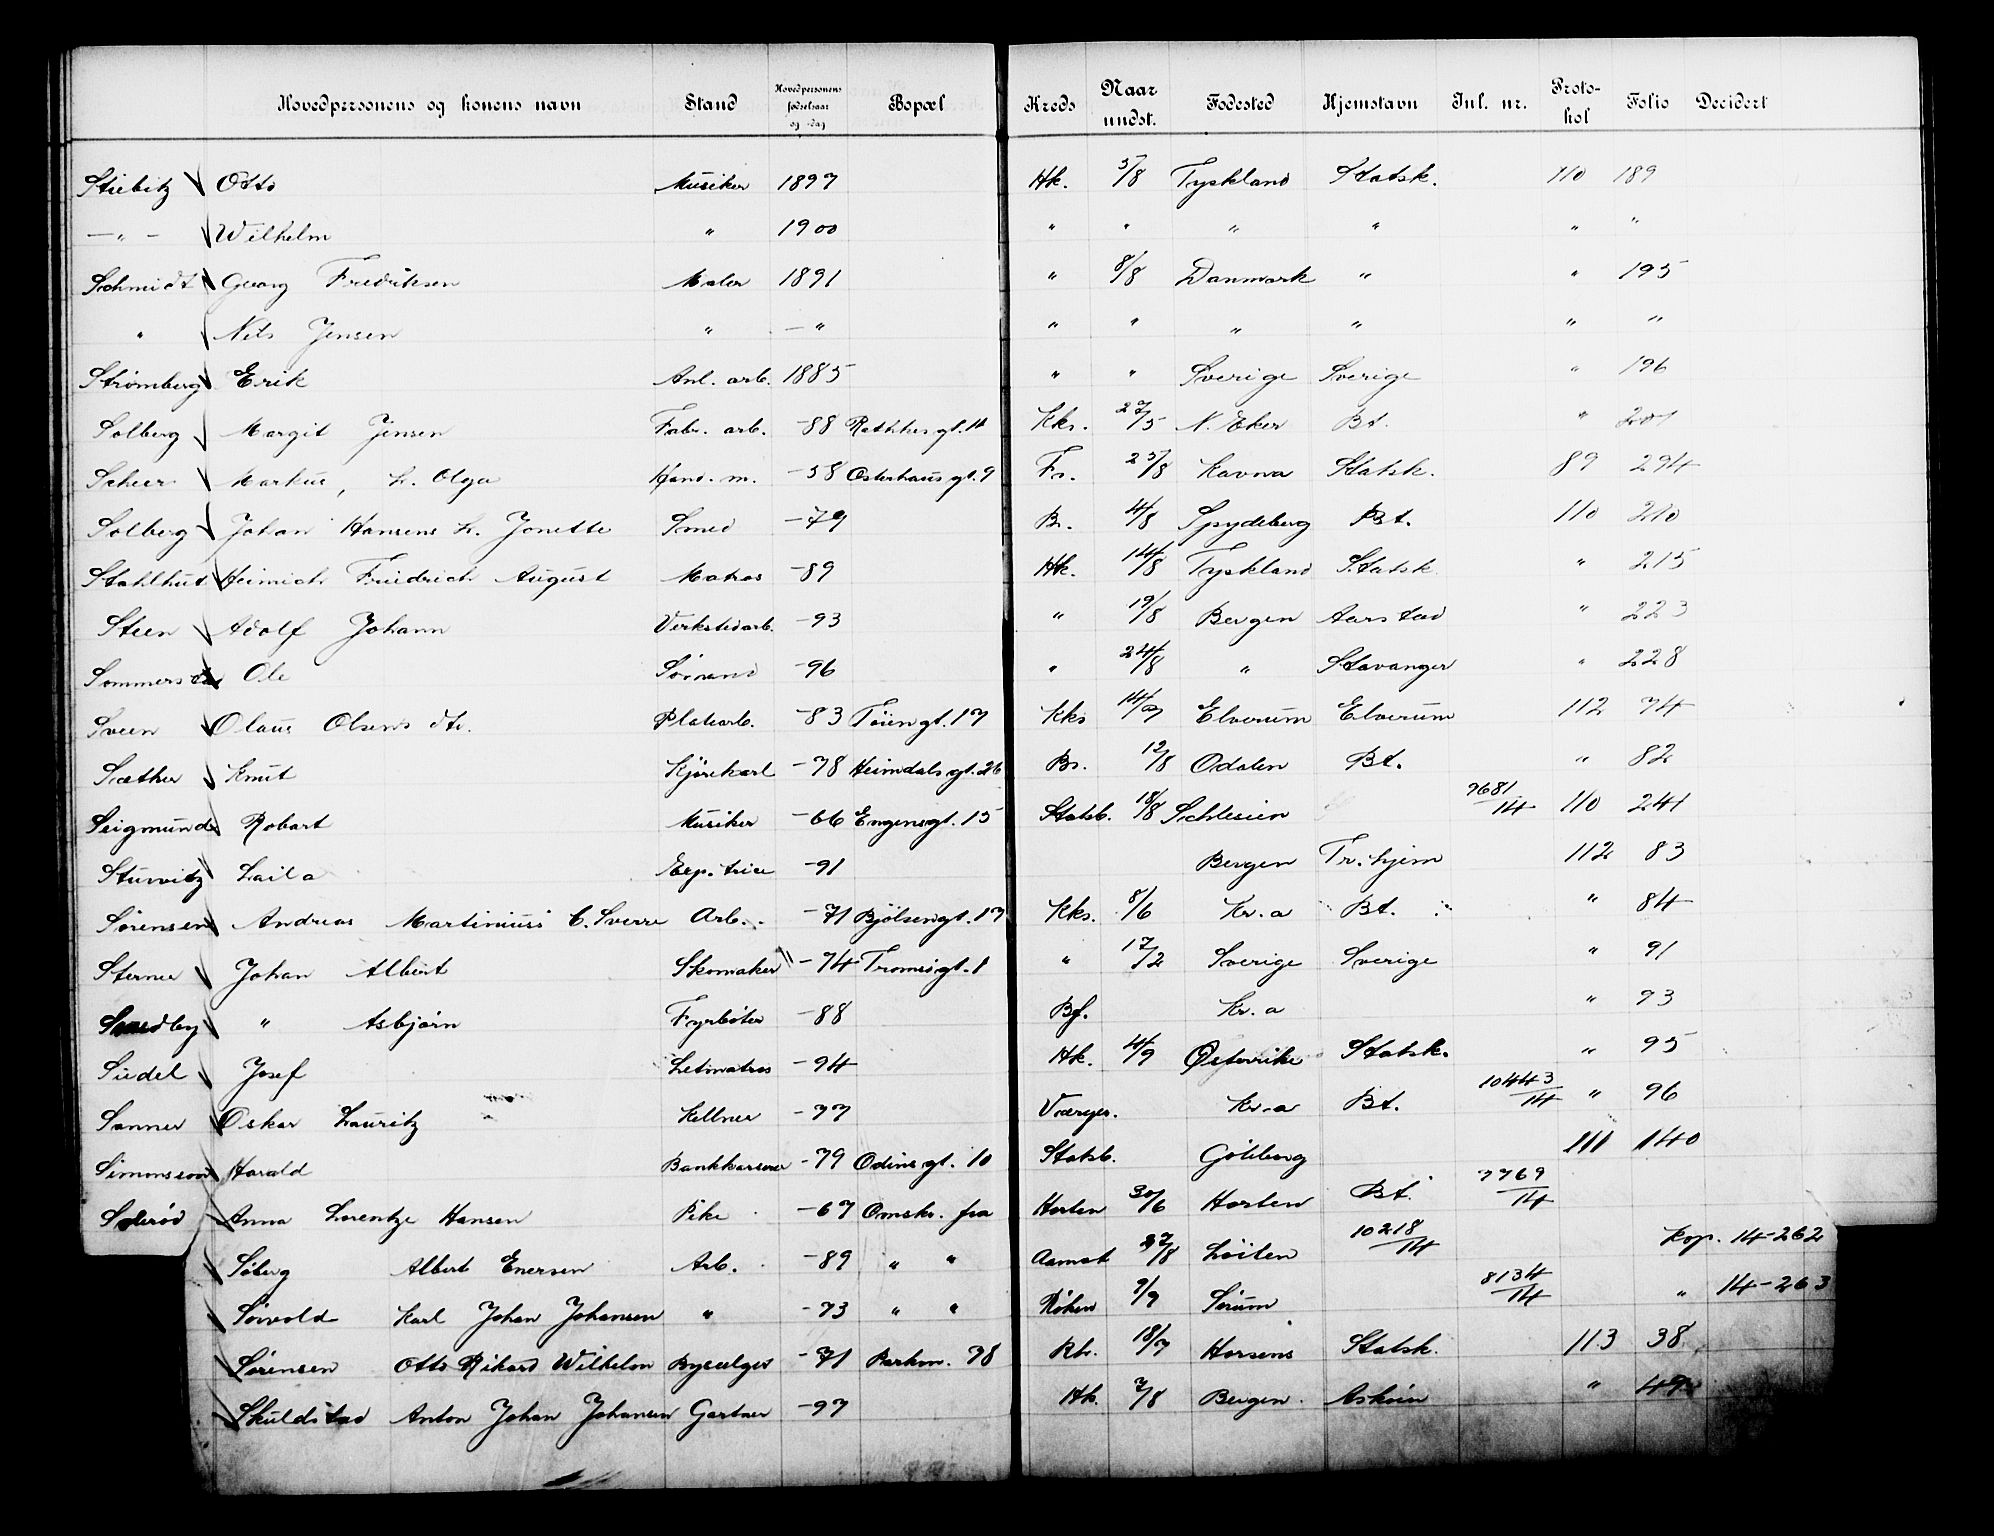 Hovedpersonens og konens navn Stand Hovedpersonens fødselsaar og -dag Bopæl Kreds Naar undst. Fødested Hjemstavn Jnl. nr. Protokol Folio Decidert
Stiebitz Otto Musiker 1897 Hk. 5/8 Tyskland Statsk. 110 189
—„— Wilhelm „ 1900 „ „ „ „ „ „
Schmidt Georg Fredriksen Maler 1891 „ 8/8 Danmark „ „ 195
„ Nils Jensen „ —„ „ „ „ „ „ „
Strømberg Erik Anl. arb. 1885 „ „ Sverige Sverige „ 196
Solberg Margit Jensen Fabr. arb. -88 Raadhusgt. 11 Kks. 27/5 N. Eker Bt. „ 201
Scheer Markus, h. Olga Hand. m. -58 Osterhausgt. 9 Fr. 25/8 Kovna Statsk. 89 294
Solberg Johan Hansens h. Jonette Smed -79 Br. 4/8 Spydeberg Bt. 110 210
Stahlhut Heinrich Friedrich August Matros -89 Hk. 14/8 Tyskland Statsk. „ 215
Steen Adolf Johann Verkstedarb. -93 „ 19/8 Bergen Aarstad „ 223
Sommerstad Ole Sømand -96 „ 24/8 „ Stavanger „ 228
Sveen Olaus Olsens dtr. Platearb. -83 Tøiengt. 17 Kks 14/7 Elverum Elverum 112 74
Sæther Knut Kjørekarl -78 Heimdalsgt. 26 Br. 12/8 Odalen Bt. „ 82
Seigmund Robart Musiker -66 Engensgt. 15 Statsb. 18/8 Schlesien 9681/14 110 241
Sturvitz Laila Exp. trice -91 Bergen Tr.hjem 112 83
Sørensen Andreas Martiniuss b. Sverre Arb. -71 Bjølsengt. 17 Kks. 8/6 Kr.a Bt. „ 84
Sterner Johan Albert Skomaker -74 Tromsøgt. 1 „ 17/2 Sverige Sverige „ 91
Sandby „ Asbjørn Fyrbøter -88 Bf. Kr.a „ 93
Siedel Josef Letmatros -94 Hk. 4/9 Østerrike Statsk. „ 95
Sanner Oskar Lauritz Kellner -77 Værger. Kr.a Bt. 10443/14 „ 96
Simonsson Harald Bankkasserer -79 Odinsgt. 10 Statsb. Göteborg 111 140
Solerød Anna Lorentze Hansen Pike -67 Omskr. fra Horten 30/6 Horten Bt. 7769/14
Søberg Albert Enersen Arb. -89 „ „ Aamot 27/8 Løiten 10218/14 Kop. 14-262
Sørvold Karl Johan Johansen „ -73 „ „ Røken 9/9 Sørum 8134/14 „ 14-263
Sørensen Otto Rikard Wilhelm Bysælger -71 Parkvn. 78 Rb. 18/7 Horsens Statsk. 113 38
Skuldstad Anton Johan Johansen Gartner -97 Hk. 7/8 Bergen. Askøen „ 49